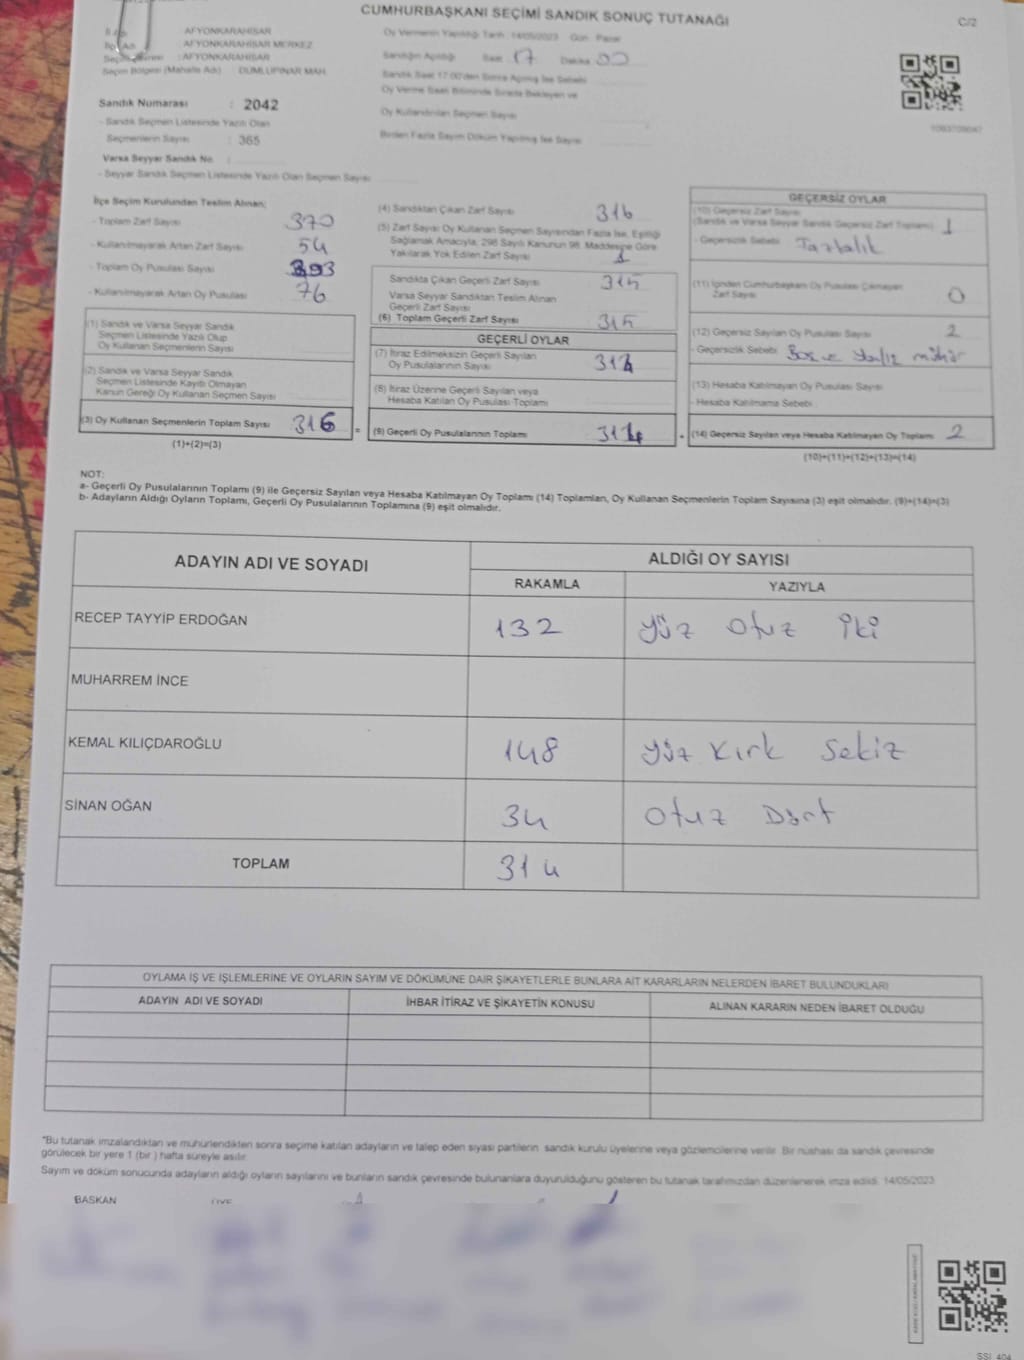 CUMHURBAŞKANI SEÇİMİ SANDIK SONUÇ TUTANAĞI
C/2
İli Adı : AFYONKARAHİSAR
İlçe Adı : AFYONKARAHİSAR MERKEZ
Seçim Çevresi : AFYONKARAHİSAR
Seçim Bölgesi (Mahalle Adı) : DUMLUPINAR MAH.
Oy Vermenin Yapıldığı Tarih : 14/05/2023 Gün : Pazar
Sandığın Açıldığı Saat : 17 Dakika : 00
Sandık Saat 17:00'den Sonra Açılmış İse Sebebi
Oy Verme Saati Bitiminde Sırada Bekleyen ve
Oy Kullandırılan Seçmen Sayısı
Birden Fazla Sayım Döküm Yapılmış İse Sayısı
Sandık Numarası : 2042
- Sandık Seçmen Listesinde Yazılı Olan
Seçmenlerin Sayısı : 365
Varsa Seyyar Sandık No :
- Seyyar Sandık Seçmen Listesinde Yazılı Olan Seçmen Sayısı
İlçe Seçim Kurulundan Teslim Alınan;
- Toplam Zarf Sayısı 370
- Kullanılmayarak Artan Zarf Sayısı 54
- Toplam Oy Pusulası Sayısı 393
- Kullanılmayarak Artan Oy Pusulası 76
(1) Sandık ve Varsa Seyyar Sandık
Seçmen Listesinde Yazılı Olup
Oy Kullanan Seçmenlerin Sayısı
(2) Sandık ve Varsa Seyyar Sandık
Seçmen Listesinde Kayıtlı Olmayan
Kanun Gereği Oy Kullanan Seçmen Sayısı
(3) Oy Kullanan Seçmenlerin Toplam Sayısı 316 =
(1)+(2)=(3)
(4) Sandıktan Çıkan Zarf Sayısı 316
(5) Zarf Sayısı Oy Kullanan Seçmen Sayısından Fazla İse, Eşitliği
Sağlamak Amacıyla, 298 Sayılı Kanunun 98. Maddesine Göre
Yakılarak Yok Edilen Zarf Sayısı
Sandıkta Çıkan Geçerli Zarf Sayısı 315
Varsa Seyyar Sandıktan Teslim Alınan
Geçerli Zarf Sayısı
(6) Toplam Geçerli Zarf Sayısı 315
GEÇERLİ OYLAR
(7) İtiraz Edilmeksizin Geçerli Sayılan
Oy Pusulalarının Sayısı 314
(8) İtiraz Üzerine Geçerli Sayılan veya
Hesaba Katılan Oy Pusulası Toplamı
(9) Geçerli Oy Pusulalarının Toplamı 314 +
GEÇERSİZ OYLAR
(10) Geçersiz Zarf Sayısı
(Sandık ve Varsa Seyyar Sandık Geçersiz Zarf Toplamı) 1
- Geçersizlik Sebebi :
(11) İçinden Cumhurbaşkanı Oy Pusulası Çıkmayan
Zarf Sayısı 0
(12) Geçersiz Sayılan Oy Pusulası Sayısı 2
- Geçersizlik Sebebi : Boş ve mühür
(13) Hesaba Katılmayan Oy Pusulası Sayısı
- Hesaba Katılmama Sebebi :
(14) Geçersiz Sayılan veya Hesaba Katılmayan Oy Toplamı 2
(10)+(11)+(12)+(13)=(14)
NOT:
a- Geçerli Oy Pusulalarının Toplamı (9) ile Geçersiz Sayılan veya Hesaba Katılmayan Oy Toplamı (14) Toplamları, Oy Kullanan Seçmenlerin Toplam Sayısına (3) eşit olmalıdır. (9)+(14)=(3)
b- Adayların Aldığı Oyların Toplamı, Geçerli Oy Pusulalarının Toplamına (9) eşit olmalıdır.
ADAYIN ADI VE SOYADI
ALDIĞI OY SAYISI
RAKAMLA YAZIYLA
RECEP TAYYİP ERDOĞAN 132 Yüz Otuz İki
MUHARREM İNCE
KEMAL KILIÇDAROĞLU 148 Yüz Kırk Sekiz
SİNAN OĞAN 34 Otuz Dört
TOPLAM 314
OYLAMA İŞ VE İŞLEMLERİNE VE OYLARIN SAYIM VE DÖKÜMÜNE DAİR ŞİKAYETLERLE BUNLARA AİT KARARLARIN NELERDEN İBARET BULUNDUKLARI
ADAYIN ADI VE SOYADI İHBAR İTİRAZ VE ŞİKAYETİN KONUSU ALINAN KARARIN NEDEN İBARET OLDUĞU
*Bu tutanak imzalandıktan ve mühürlendikten sonra seçime katılan adayların ve talep eden siyasi partilerin sandık kurulu üyelerine veya gözlemcilerine verilir. Bir nüshası da sandık çevresinde
görülecek bir yere 1 (bir) hafta süreyle asılır.
Sayım ve döküm sonucunda adayların aldığı oyların sayılarını ve bunların sandık çevresinde bulunanlara duyurulduğunu gösteren bu tutanak tarafımızdan düzenlenerek imza edildi. 14/05/2023
BAŞKAN ÜYE
SSI 404